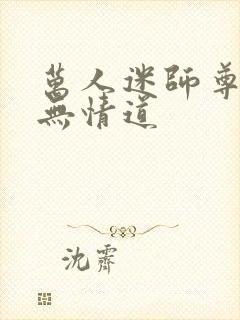 萬人迷師尊
無情道
沈霽